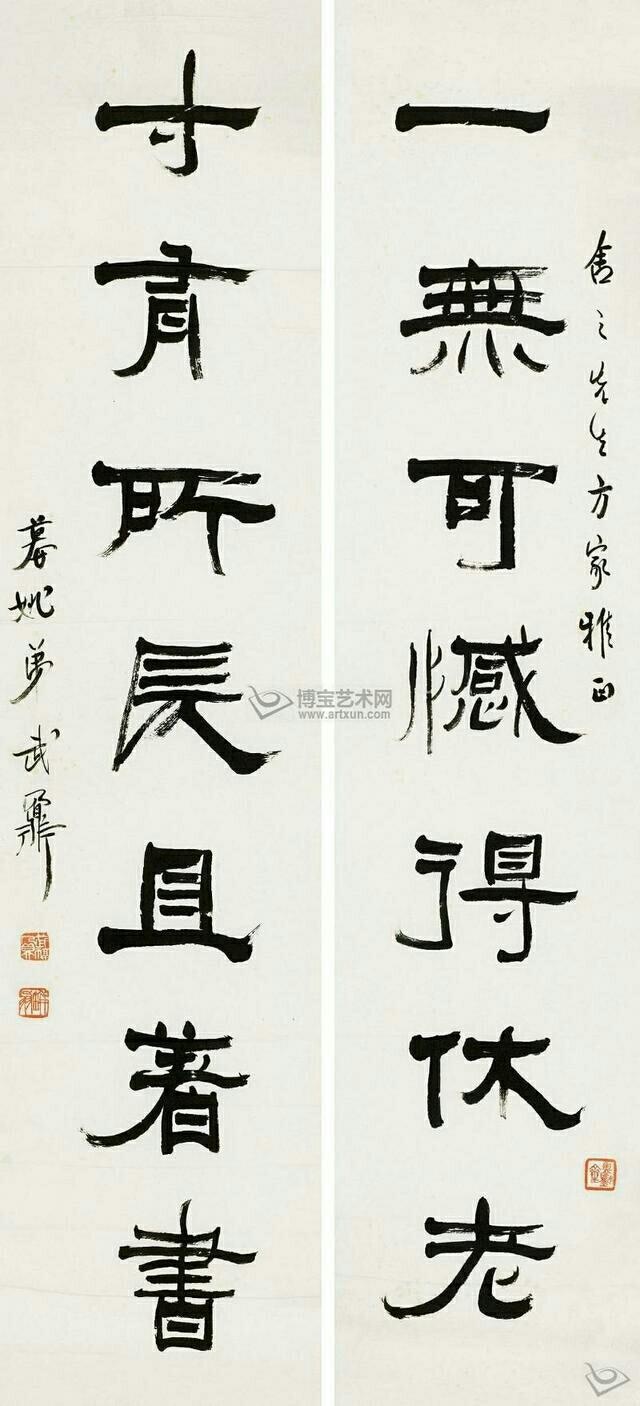 舍之先生方家雅正
一無可憾得休老
寸有所長且著書
慕姚弟武鼐
博宝艺术网
www.artxun.com